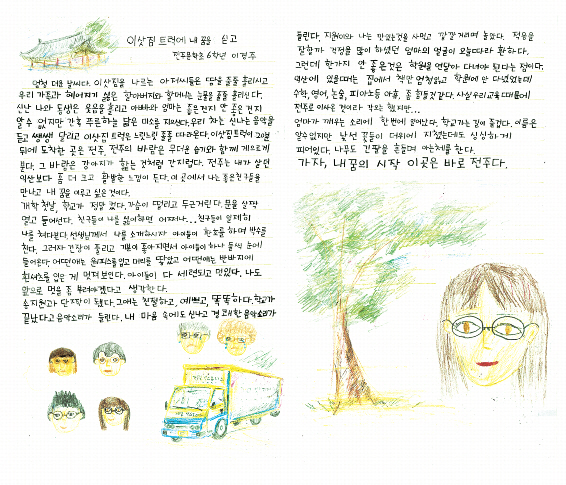 이삿짐 트럭에 내 꿈을 싣고
전주문학초 6학년 이경주
엄청 더운 날씨다. 이삿짐을 나르는 아저씨들은 땀방울 흘리시고
우리 가족과 헤어지기 싫은 할아버지와 할머니는 눈물을 줄줄 흘리신다.
신난 나와 동생은 웃음을 흘리고 아빠와 엄마는 좋은건지 안 좋은 건지
알 수 없지만 간혹 주문하는 닮은 미소를 지으셨다. 우리 차는 신나는 음악을
듣고 쌩쌩 달리고 이삿짐 트럭은 느릿느릿 졸졸 따라온다. 이삿짐트럭이
뒤에 도착한 곳은 전주. 전주의 바람은 무더운 습기와 함께 게으르게
분다. 그 바람은 강아지가 핥는 것처럼 간지럽다. 전주는 내가 살던
익산보다 좀 더 크고 활발한 느낌이 든다. 이 곳에서 나는 좋은친구들을
만나고 내 꿈을 이루고 싶은 것이다.
개학 첫날, 학교가 정말 컸다. 가슴이 떨리고 두근거린다. 문을 살짝
열고 들어선다. 친구들이 나를 싫어하면 어쩌나... 친구들이 일제히
나를 쳐다본다. 선생님께서 나를 소개하시자 아이들이 환호를 하며 박수를
친다. 그러자 긴장이 풀리고 기분이 좋아지면서 아이들이 하나 둘씩 눈에
들어온다. 어떤애는 원피스를 입고 머리를 땋았고 어떤애는 반바지에
흰셔츠를 입은 게 멋져보인다. 아이들이 다 세련되고 멋있다. 나도
앞으로 멋을 좀 부려야겠다고 생각한다.
손지원과 단짝이 됐다. 그애는 친절하고, 예쁘고, 똑똑하다. 학교가
끝났다고 음악소리가 들린다. 내 마음 속에도 신나고 경쾌한 음악소리가
들린다. 지원이와 나는 맛있는것을 사먹고 깔깔거리며 놀았다. 적응을
잘할까 걱정을 많이 하셨던 엄마의 얼굴이 오늘따라 환하다.
그런데 한가지 안 좋은것은 학원을 엄청 다녀야 된다는 점이다.
익산에 있을때는 집에서 책만 엄청읽고 학원에 안 다녔었는데
수학, 영어, 논술, 피아노등 아휴, 좀 힘들것같다. 사실 우리교육 때문에
전주로 이사온 것이라 각오는 했지만...
엄마가 깨우는 소리에 한번에 일어났다. 학교가는 길이 즐겁다. 이름은
알수없지만 낯선 꽃들이 더위에 지쳤는데도 싱싱하게
피어있다. 나무도 긴팔을 흔들며 아는체를 한다.
가자, 내 꿈의 시작 이곳은 바로 전주다.